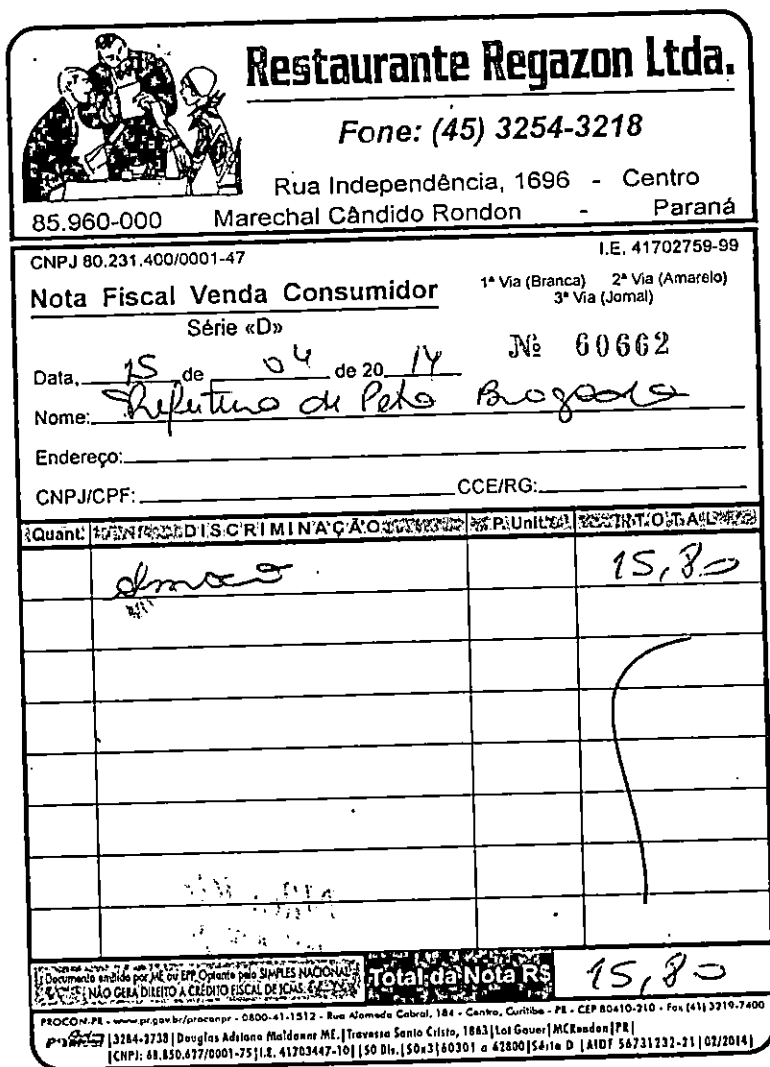 Restaurante Regazon Ltda.
Fone: (45) 3254-3218
Rua Independência, 1696 - Centro
85.960-000 Marechal Cândido Rondon - Paraná
CNPJ 80.231.400/0001-47 I.E. 41702759-99
Nota Fiscal Venda Consumidor 1ª Via (Branca) 2ª Via (Amarelo)
3ª Via (Jornal)
Série «D»
Nº 60662
Data, 15 de 04 de 20 14
Nome: de Pato Bragado
Endereço:
CNPJ/CPF: CCE/RG:
Quant. DISCRIMINAÇÃO P. Unit. TOTAL
15,80
Documento emitido por ME ou EPP Optante pelo SIMPLES NACIONAL
NÃO GERA DIREITO A CRÉDITO FISCAL DE ICMS.
Total da Nota R$ 15,80
PROCON-PR - www.pr.gov.br/proconpr - 0800-41-1512 - Rua Alameda Cabral, 184 - Centro, Curitiba - PR - CEP 80410-210 - Fax (41) 3219-7400
3284-2738 | Douglas Adriano Maldaner ME. | Travessa Santo Cristo, 1863 | Lot Gauer | MCRondon | PR |
| CNPJ: 68.850.677/0001-75 | I.E. 41703447-10 | (50 Bls. | 50x3 | 60301 a 62800 | Série D | AIDF 56731232-21 | 02/2014 |